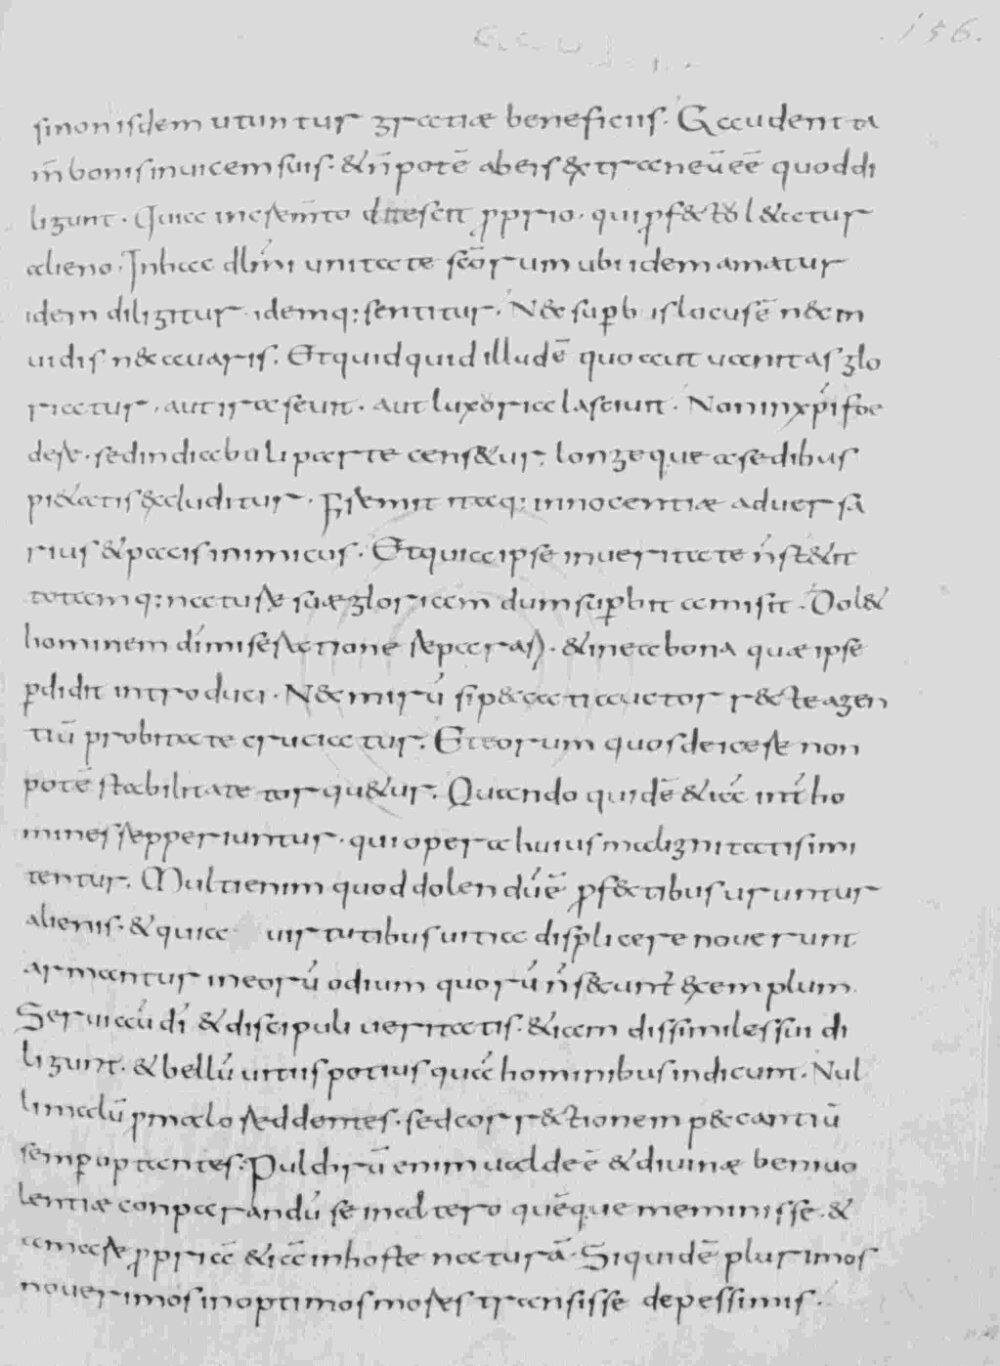 .156.
si non isdem utuntur gratiae beneficiis. Gaudent ta
m̄ bonis inuicem suis. & n̄ potē ab eis extraneū eē quod di
ligunt. Quia in e sem̄to ditescit proprio. qui profectu laetatur
alieno. In hac dilini unitate scōrum ubi idem amatur
idem diligitur. idemq: sentitur. Nec superbis locus ē nec in
uidis nec auaris. Et quidquid illud ē quo aut uanitas glo
riatur. aut ira seuit. aut luxoria lasciuit. Non in xp̄i foe
dere. sed in diaboli parte censetur. longeque a sedibus
pietatis excluditur. Fremit itaq: innocentiae aduersa
rius & pacis inimicus. Et quia ipse in ueritate n̄ stetit
totamq: naturae suae gloriam dum superbit amisit. Dolet
hominem dī miseratione reparari. & in ea bona quae ipse
perdidit introduci. Nec mirū si peccati auctor recte agen
tiū probitate cruciatur. Et eorum quos deicere non
potē stabilitate torquetur. Quando quidē etiā int̄ ho
mines repperiuntur. qui opera huius malignitatis imi
tentur. Multi enim quod dolendū ē profectibus uruntur
alienis. & quia uirtutibus uitia displicere nouerunt
armantur in eorū odium quorū n̄ secunt̄ exemplum.
Serui aū dī & discipuli ueritatis. etiam dissimiles sui di
ligunt. & bellū uitiis potius quā hominibus indicunt. Nul
li malū p malo reddentes. sed correctionem peccantiū
semper optantes. Pulchrū enim ualde ē & diuinae beniuo
lentiae conparandū se in altero quēque meminisse. &
amare propriā etiā in hoste naturā. Siquidē plurimos
nouerimos in optimos mores transisse de pessimis.